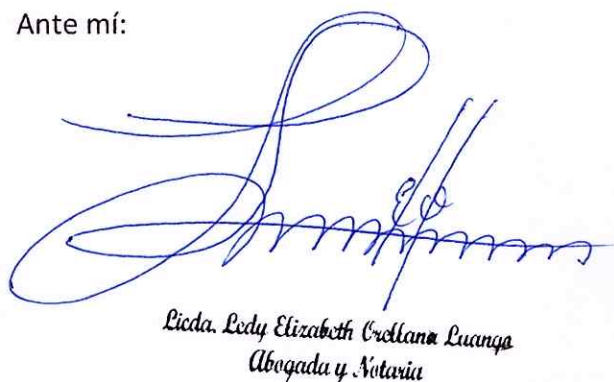 Ante mí:
Licda. Ledy Elizabeth Orellana Luanga
Abogada y Notaria